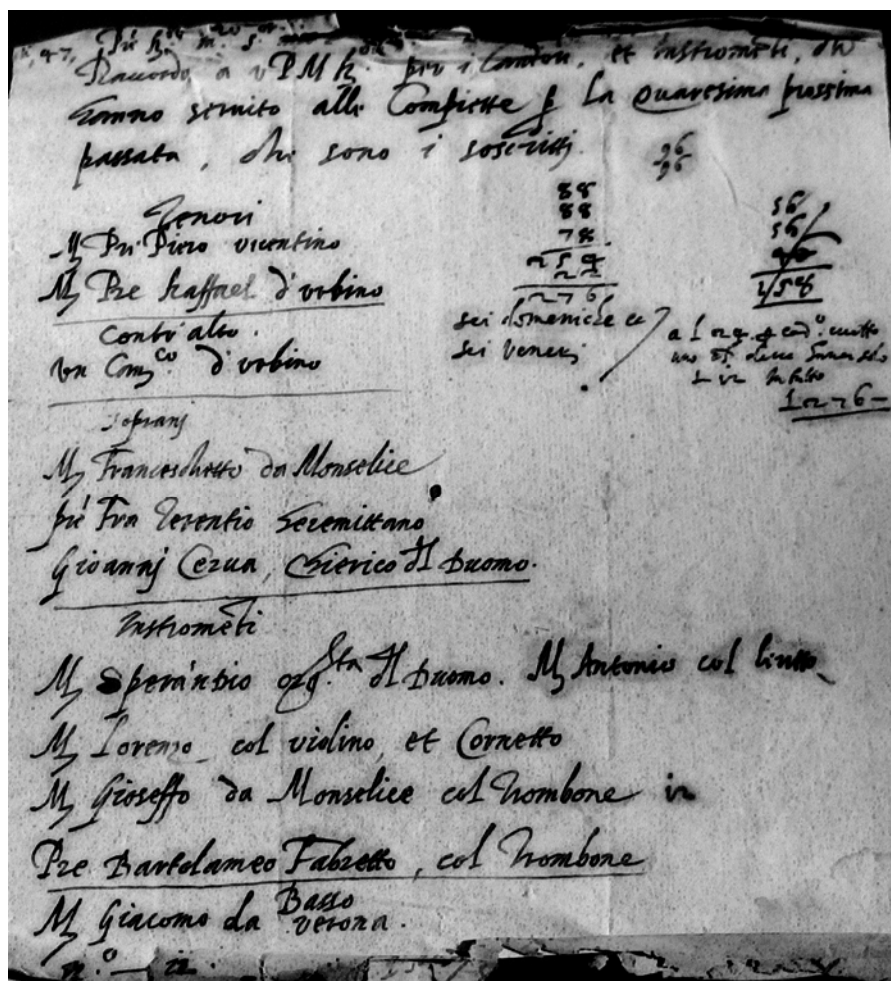 Raccordo à v P M per i Cantori, et instromēti, che
hanno seruito alle Compiette p la Quaresima prossima
passata, che sono i soscritti.
96
96
Tenori
M Pre Piero vicentino
M Pre Raffael d'vrbino
88
88
78
254
22
276
56
56
sei domeniche et
sei veneri
1276
Contr'alto.
vn d'vrbino
Soprani
M Franceschetto da Monselice
pre Fra Terentio heremittano
Giouannj Cerua, Chierico dl Duomo.
Instromēti
M Sperandio org.sta dl Duomo. M Antonio col liutto
M Lorenzo col violino, et Cornetto
M Gioseffo da Monselice col Trombone
Pre Bartolameo Fabretto, col Trombone
Basso
M Giacomo da verona.
n.o — 12.